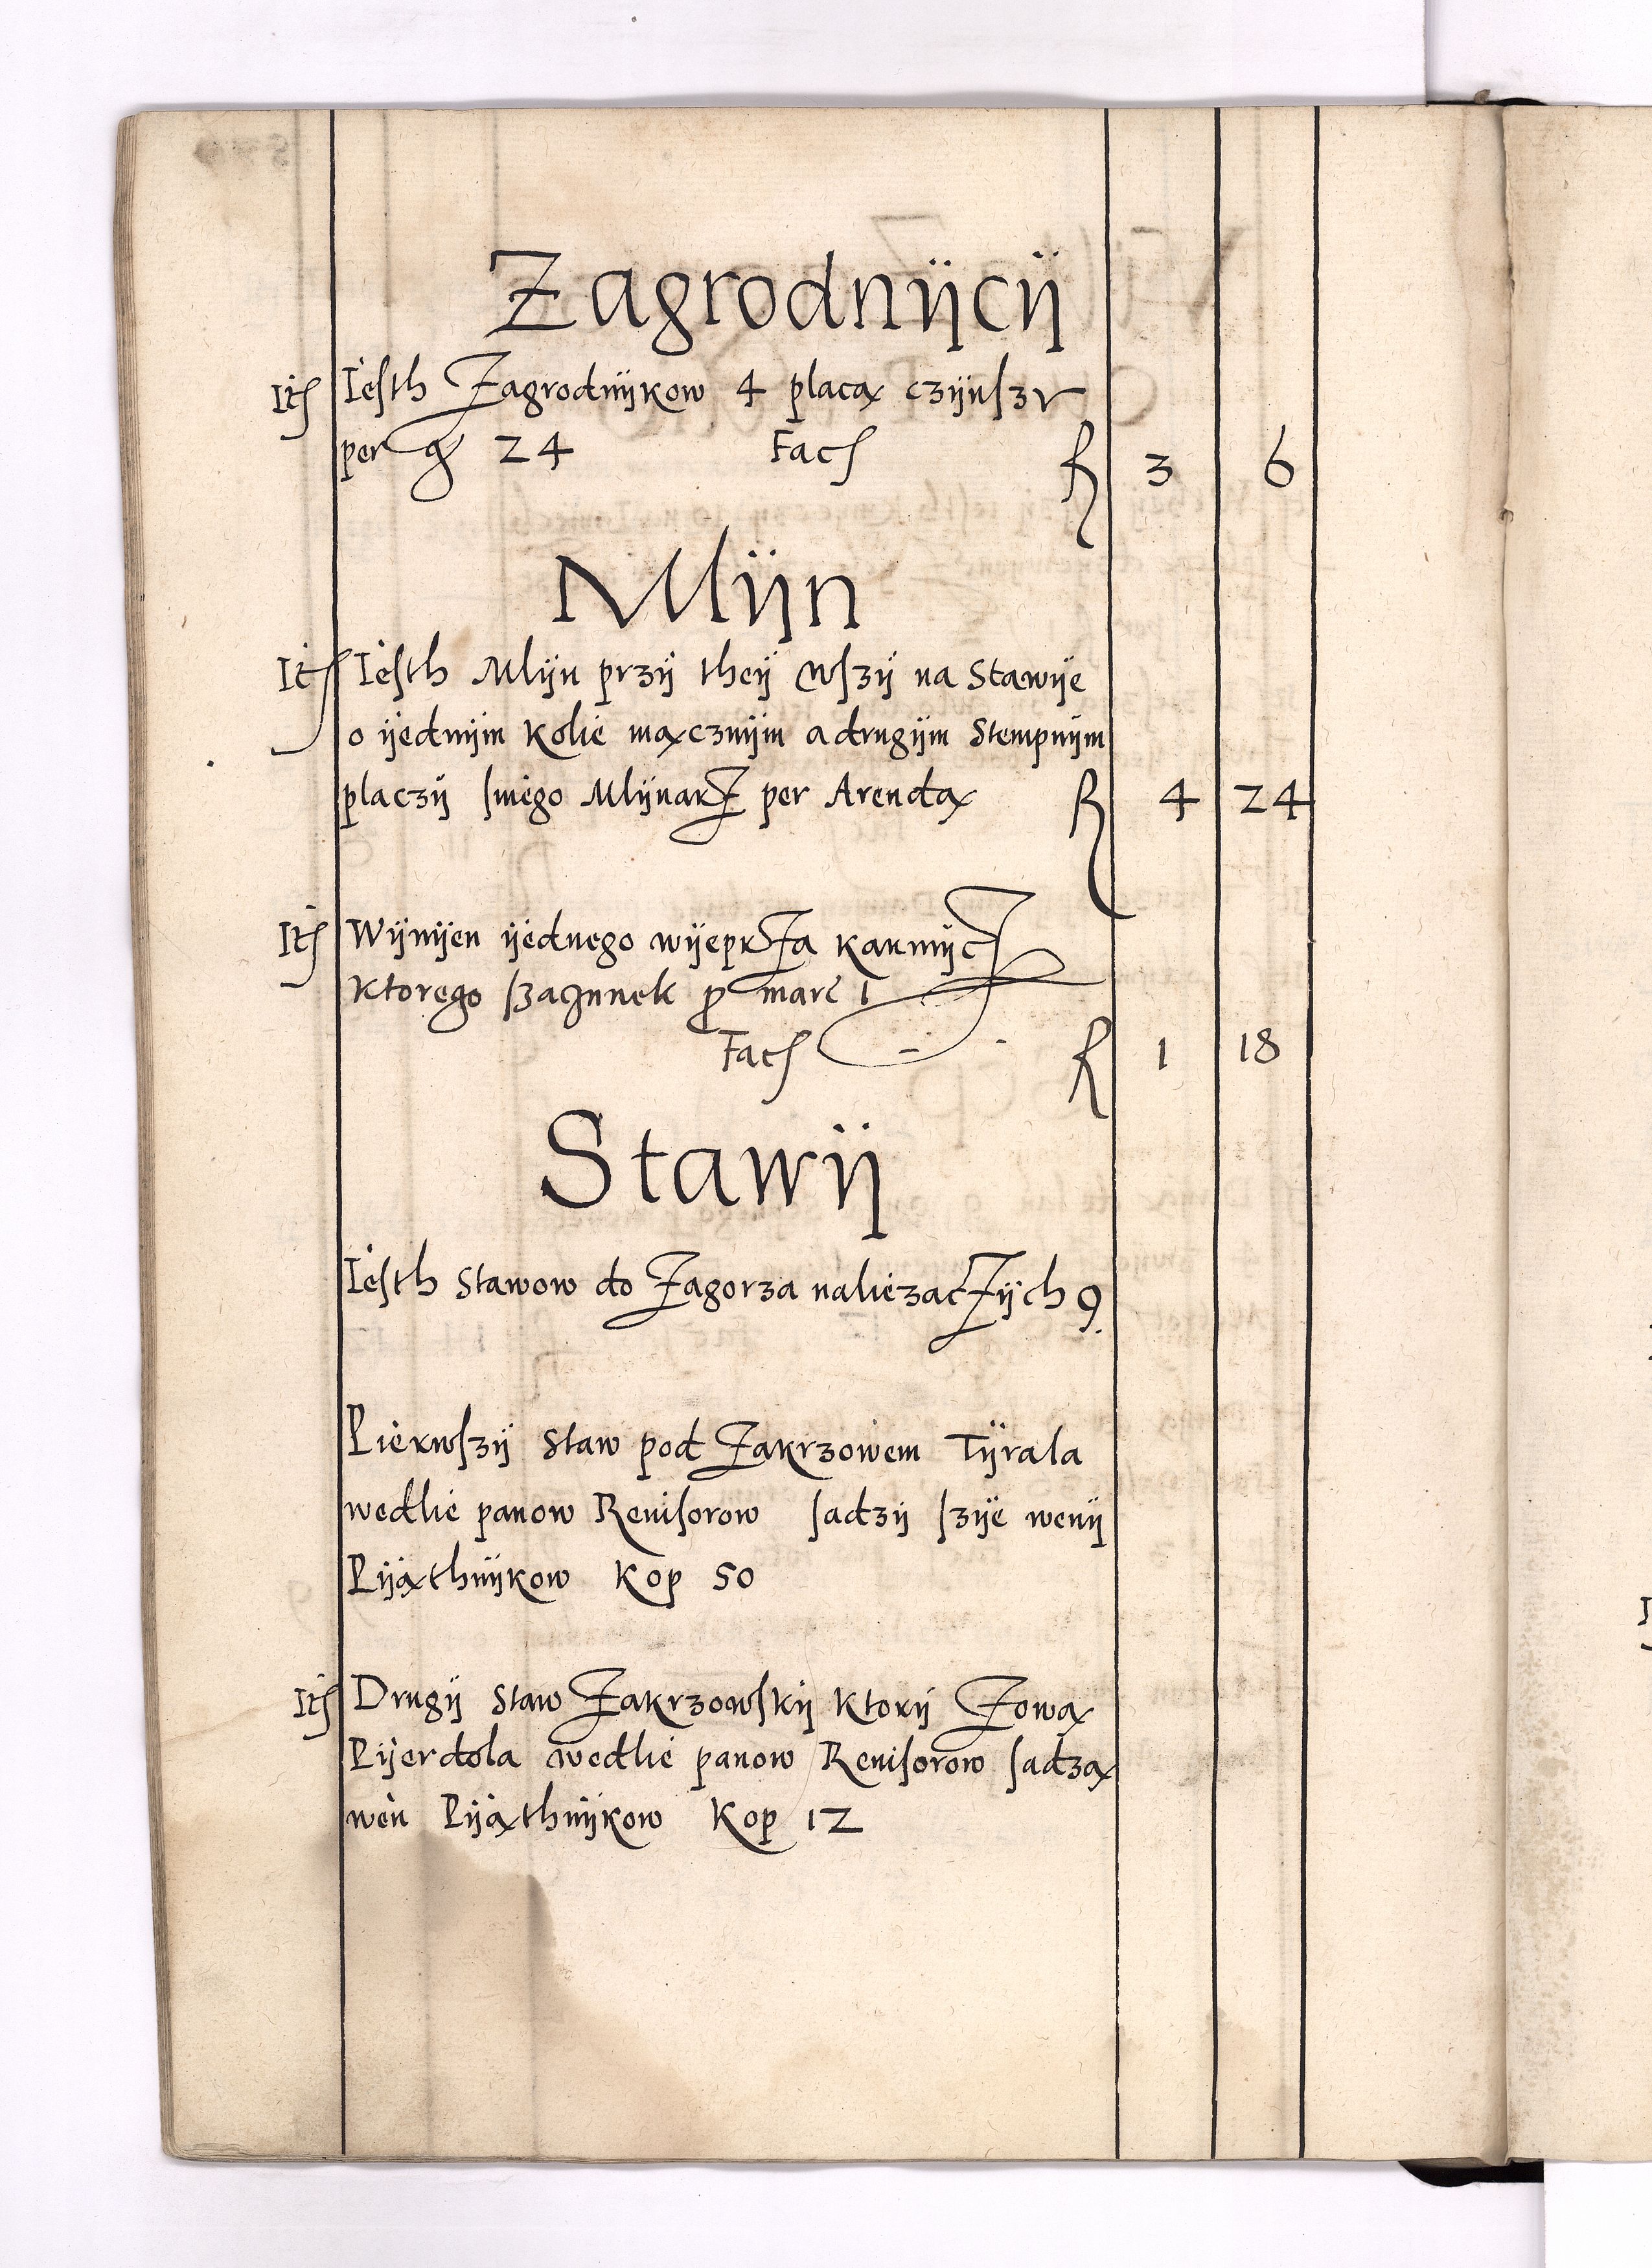 Zagrodnijcij
It. Iesth Zagrodnijkow 4 placax czijnszv
per g 24 Fac. fl 3 6
Mlijn
It. Iesth Mlijn przij theij wszij na Stawije
o ijednijm kolie maxcznijm a drugijm Stempnijm
placzij sniego MlijnarZ per Arendax fl 4 24
It. Wijnijen ijednego wijeprZa karmijcZ
ktorego szaczunek pro marc 1
Fac. fl 1 18
Stawij
Iesth stawow do Zagorza naliezacZijch 9.
Pierwszij Staw pod Zakrzowem Tijrala
wedlie panow Revisorow sadzij szije wenij
Pijaxthnijkow kop 50
It. Drugij Staw Zakrzowskij ktorij Zowax
Pijerdola wedlie panow Revisorow sadzax
wen Pijaxthnijkow kop 12